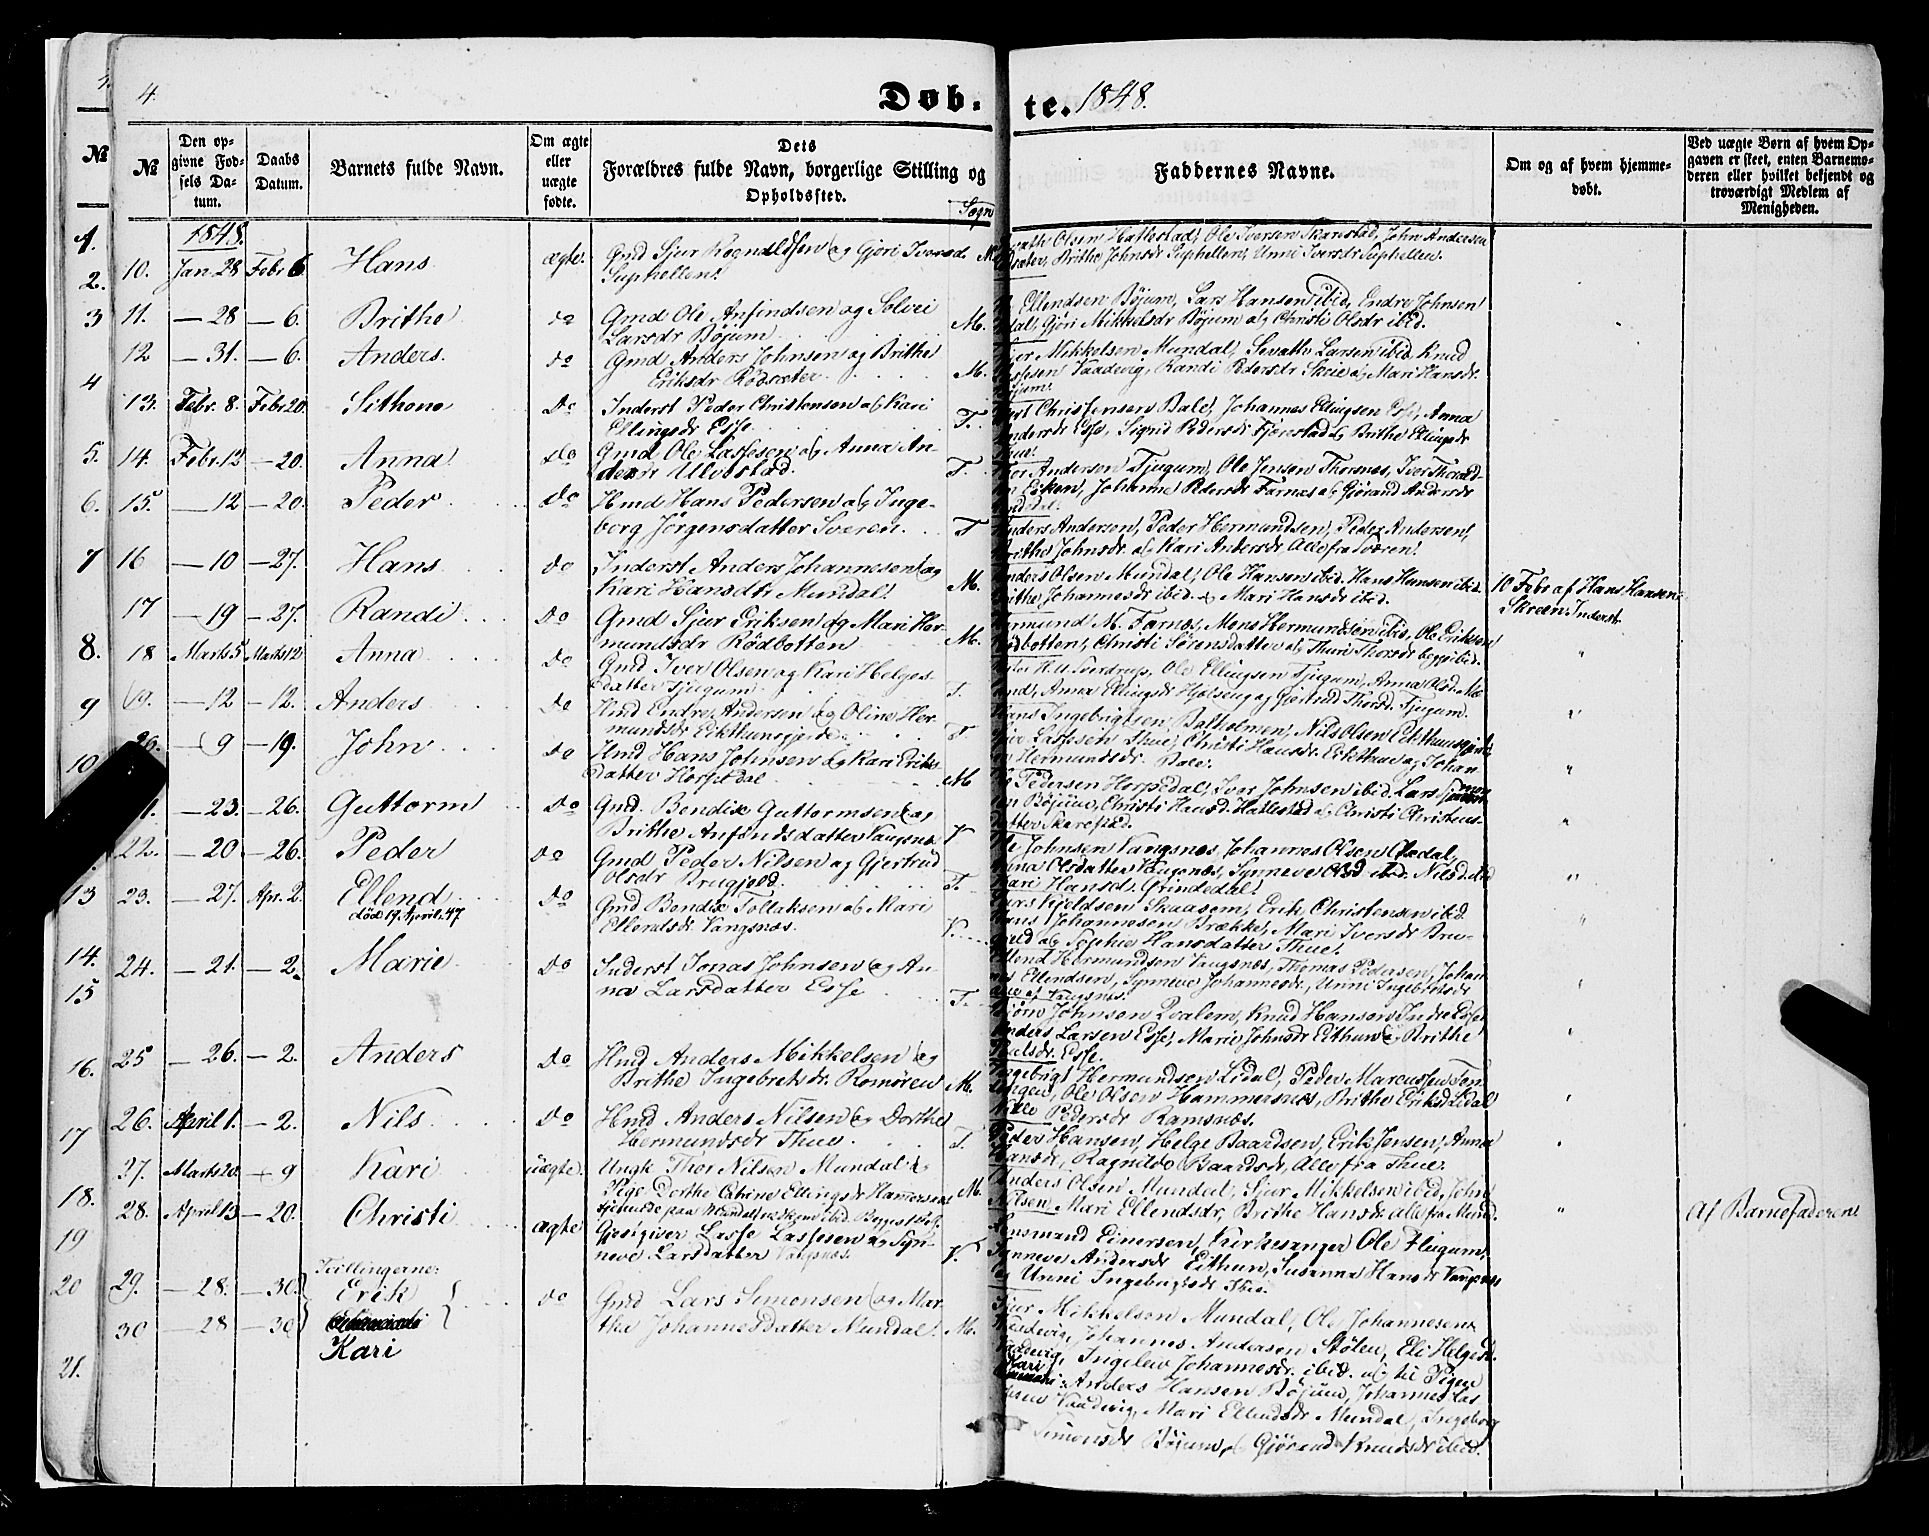 4.
Døb-te. 1848.
№
Den op-
givne Fød-
sels Da-
tum.
Daabs
Datum.
Barnets fulde Navn.
Om ægte
eller
uægte
fødte.
Dets
Forældres fulde Navn, borgerlige Stilling og
Opholdssted.
Sogn
Faddernes Navne.
Om og af hvem hjemme-
døbt.
Ved uægte Børn af hvem Op-
gaven er skeet, enten Barnemo-
deren eller hvilket bekjendt og
troværdigt Medlem af
Menigheden.
1848.
10. Jan. 28 Febr 6 Hans ægte. Gmd Sjur Rognaldsen og Gjøri Iversd.
Suphellen.
Olsen Hatlestad, Ole Iversen Skarestad, John Andersen
Brithe Johnsdr Suphellen, Unni Iversdr Suphellen.
11. — 28 — 6. Brithe do Gmd Ole Anfindsen og Solvei
Larsdr Bøjum M.
Ellendsen Bøjum, Lars Hansen ibid, Endre Johnsen
Gjøri Mikkelsdr Bøjum og Christi Olsdr ibid.
12 — 31. — 6. Anders. do Gmd Anders Johnsen og Brithe
Eriksdr Rødsæter M.
Mikkelsen Mundal, Sivath Larsen ibid. Knud
Vaadevig, Randi Pedersdr Skrie og Mari Hansdr.
13. Febr. 8. Febr 20. Sithene Do Inderst Peder Christensen og Kari
Ellingsdr Esse T.
Christensen Bale, Johannes Ellingsen Esse, Anna
Andersdr Esse, Sigrid Pedersdr Fjørestad og Brithe Ellingsdr
14. Febr. 12 — 20. Anna do Gmd Ole Lassesen og Anna An-
dersdr Ulvestad. T.
Andersen Tjugum, Ole Jensen Thorsnes, Iver Thorød-
Johanne Pedersdr Farnæs og Gjørand Andersdr
15. — 12 — 20. Peder do Hmd Hans Pedersen og Inge-
borg Jørgensdatter Sværen. T
Anders Andersen, Peder Hermundsen, Peder Andersen,
Brithe Johnsdr. og Kari Andersdr, Alle fra Sværen.
16 — 10 — 27. Hans do Inderst Anders Johannesen og
Kari Hansdtr Mundal M.
Anders Olsen Mundal, Ole Hansen ibid. Hans Hansen ibid.
Brithe Johannesdr ibid. og Mari Hansdr ibid.
10 Febr af Hans Hansen
Skreen Inderst.
17 — 19 — 27. Randi Do Gmd Sjur Eriksen og Mari Her-
mundsdr Rødbotten M.
Hermund M. Farnæs, Mons Hermundsen ibid, Ole Eriksen
Rødbotten, Christi Sørensdatter og Thuri Thorsdr begge ibid.
18 Marts 5 Marts 12 Anna do Gmd Iver Olsen og Kari Helges-
datter Tjugum T.
Sverdrup, Ole Ellingsen Tjugum, Anna Olsd.
Anna Ellingsdr Hjelseng og Gjertrud Thorsd. Tjugum.
19. — 12 — 12. Anders do Hmd Endre Andersen og Oline Her-
mundsdr Eikthunsgjerde T
Hans Ingebrigtsen Balholmen, Nils Olsen Eikthunsgjerde
Lassesen Thue, Christi Hansdr. Eikthun og Johan-
Hermundsdr. Bale.
20. — 9 — 19. John do Hmd Hans Johnsen og Kari Eriks-
datter Horpedal M
Pedersen Horpedal, Iver Johnsen ibid. Lars
Bøjum, Christi Hansd. Hatlestad og Christi Christens-
datter Skarestad.
— 23. — 26. Guttorm do Gmd. Bendix Guttormsen og
Brithe Anfindsdatter Vangsnæs V
Ole Johnsen Vangsnæs, Johannes Olsen
Anna Olsdatter Vangsnæs, Synneve Olsd ibid. Nilsd ibid
22. — 20 — 26. Peder do Gmd Peder Nilsen og Gjertrud
Olsdr Brugjeld. T.
Kari Hansd. Grindedal.
Kjeldsen Skaasem, Erik Christensen ibid.
Hans Johannesen Brække, Mari Iversdr Bru-
gjeld og Sophie Hansdatter Thue.
23. — 27. Apr. 2. Ellend
død 19. April. 47
do Gmd Bendix Tollaksen og Mari
Ellendsdr Vangsnæs. V.
Ellend Hermundsen Vangsnæs, Thomas Pedersen, Johan-
Ellendsen, Synneve Johannesdr., Unni Ingebrigtsdr
Vangsnæs.
24. — 21. — 2. Marie do Inderst Jonas Johnsen og An-
na Larsdatter Esse T.
Bjørn Johnsen Kvalem, Knud Hansen Indre Esse
Anders Larsen Esse, Marie Johnsdr Eithun og Brithe
Nielsdr. Esse.
25 — 26. — 2. Anders do Hmd Anders Mikkelsen og
Brithe Ingebretsdr. Romøren M.
Ingebrigt Hermundsen Lidal, Peder Marcussen
Ole Olsen Hammersnæs, Brithe Eriksd Lidal
Pedersdr Ramsnæs.
26. April 1. — 2. Nils do Hmd Anders Nilsen og Dorthe
Hermundsdr Thue. T.
Peder Hansen, Helge Baardsen, Erik Jensen, Anna
Hansdr, Ragnilde Baardsdr, Alle fra Thue.
27. Marts 20. — 9 Kari uægte. Ungk. Thor Nilsen Mundal og
Pige Dorthe Cathrine Ellingsdr Hamersnæs M.
Anders Olsen Mundal, Sjur Mikkelsen ibid, John
Nilsen, Mari Ellendsdr, Brithe Hansdr alle fra Mund.
Af Barnefaderen
28. April 13 — 20. Christi ægte Gjæstgiver Lasse Lassesen og Syn-
neve Larsdatter Vangsnes. V.
Lensmand Einersen, Kirkesanger Ole Flugum,
Synneve Andersdr Eithun, Susanna Hansdr Vangsnæs
og Unni Ingebrigtsdr
Tvillingerne:
29. — 28. — 30. Erik do Gmd Lars Simonsen og Mar-
30 — 28 — 30 Kari
the Johannesdatter Mundal. M.
Sjur Mikkelsen Mundal, Ole Johannesen
Vaadevig, Johannes Andersen Stølen, Eli Helgesd.
Vaadevig, Ingeleiv Johannesdr. ibid. og til Pigen
Kari: Anders Hansen Bøjum, Johannes Las-
sesen Vaadevig, Mari Ellendsdr Mundal, Ingeborg
Simonsdr Bøjum og Gjørand Knudsdr ibid.